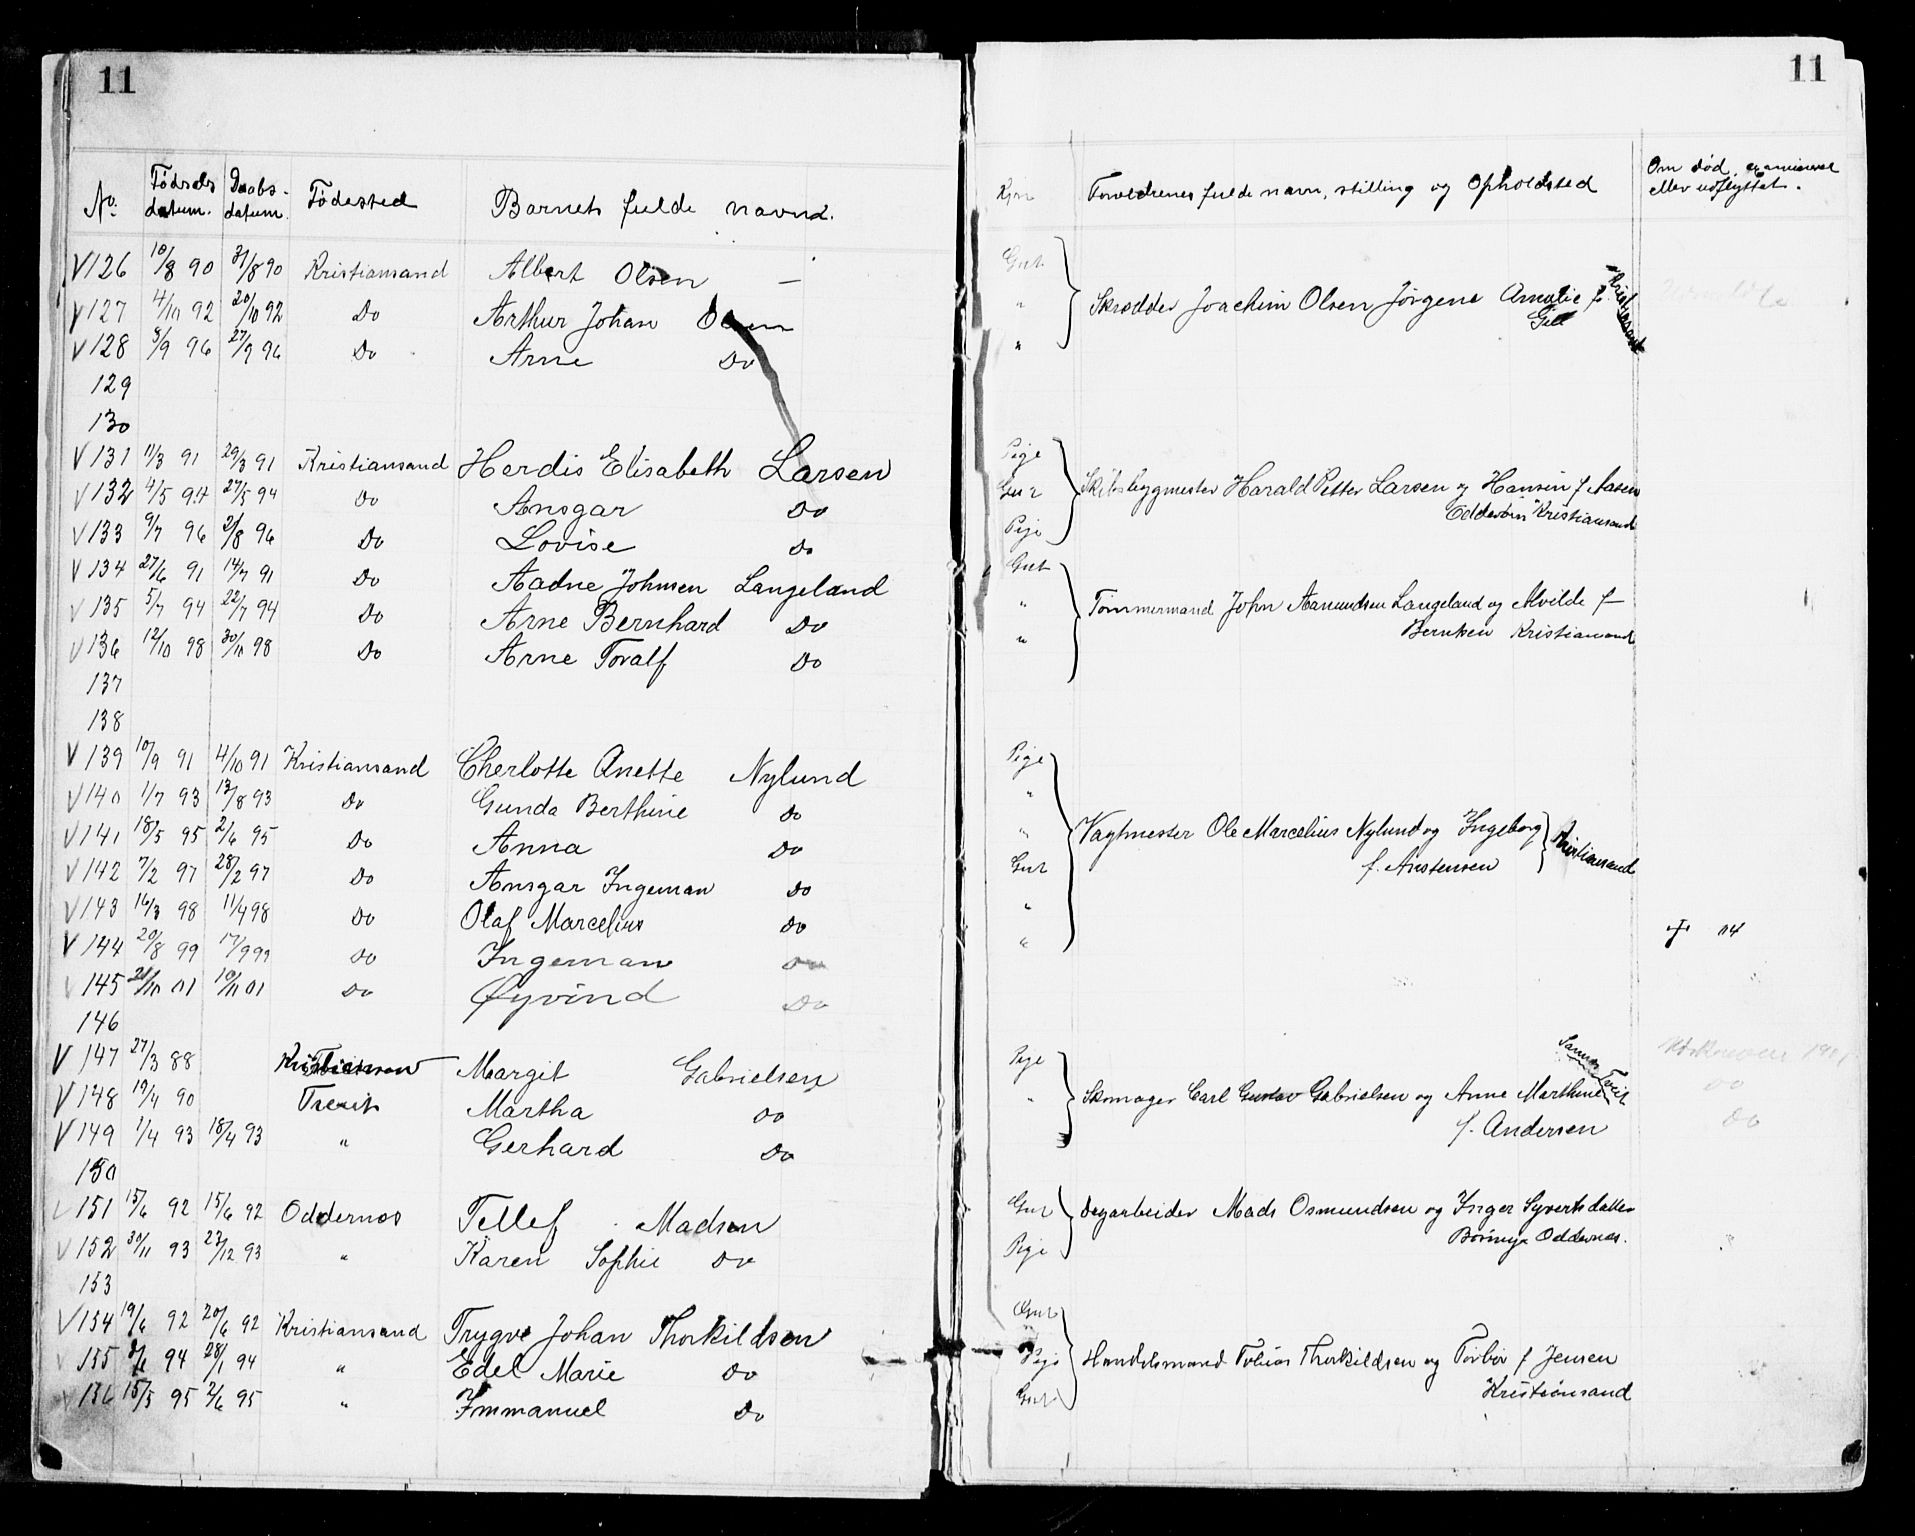 11
No. Fødsels datum. Daabs-datum. Fødested Barnets fulde navn.
V 126 10/8 90 31/8 90 Kristiansand Albert Olsen —
V 127 4/10 92 20/10 92 Do Arthur Johan Olsen
V 128 8/9 96 27/9 96 Do Arne Do
129
130
V 131 11/3 91 29/3 91 Kristiansand Herdis Elisabeth Larsen
V 132 4/5 94 27/5 94 Do Ansgar Do
V 133 9/7 96 2/8 96 Do Lovise Do
V 134 27/6 91 14/7 91 Do Aadne Johnsen Langeland
V 135 5/7 94 22/7 94 Do Arne Bernhard Do
V 136 12/10 98 30/11 98 Do Arne Toralf Do
137
138
V 139 10/9 91 4/10 91 Kristiansand Cherlotte Anette Nylund
V 140 1/7 93 13/8 93 Do Gunda Berthine Do
V 141 18/5 95 2/6 95 Do Anna Do
V 142 7/2 97 28/2 97 Do Ansgar Ingeman Do
V 143 16/3 98 11/4 98 Do Olaf Marcelius Do
V 144 20/8 99 17/9 99 Do Ingeman Do
V 145 21/10 01 10/11 01 Do Øyvind Do
146
V 147 27/3 88 Margit Gabrielsen
V 148 19/4 90 Treeit Martha Do
V 149 1/4 93 18/4 93 " Gerhard Do
150
V 151 15/6 92 15/6 92 Oddernes Tellef Madsen
V 152 30/11 93 23/12 93 " Karen Sophie Do
153
V 154 19/6 92 20/6 92 Kristiansand Trygve Johan Thorkildsen
V 155 94 28/1 94 " Edel Marie Do
V 156 15/5 95 2/6 95 " Immanuel Do
11
Kjøn Forældrenes fulde navn, stilling og Opholdsted Om død, eller udflyttet.
Gut
" Skrædder Joachim Olsen Jørgene Amalie f. Kristiansand
" Gill
Pige
Gut Skibsbygmester Harald Petter Larsen og Hansin f Aasen
Pige Kristiansand
Gut
" Tømmermand John Aamundsen Langeland og Alvilde f—
" Berntsen Kristiansand
Pige
"
" Vagtmester Ole Marcelius Nylund og Ingeborg Kristiansand
Gut f. Anstensen
"
" † 04
Pige
" Skomager Carl Gustav Gabrielsen og Anne Marthine
f. Andersen Do
Gut Dagarbeider Mads Osmundsen og Inger Syvertsdatter
Pige Oddernes.
Gut
Pige Handelsmand Tobias Thorkildsen og Torbør f Jensen
Gut Kristiansand